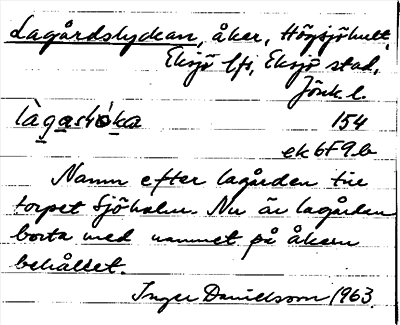 Lagårdslyckan, åker, Högsjöhult,
Eksjö lfs, Eksjö stad,
Jönk l.
154
ek 6F9b
Namn efter lagården till
torpet Sjöholm. Nu är lagården
borta med namnet på åkern
behållet.
Inger Danielsson 1963